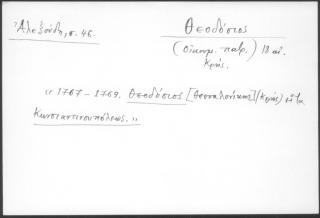 Ἀλεξούδη, σ. 46.
Θεοδόσιος
(Οἰκουμ. πατρ.) 18 αἰ.
Κρής.
« 1767 – 1769. Θεοδόσιος [Θεσσαλονίκης] (Κρής) εἶτα
Κωνσταντινουπόλεως. »